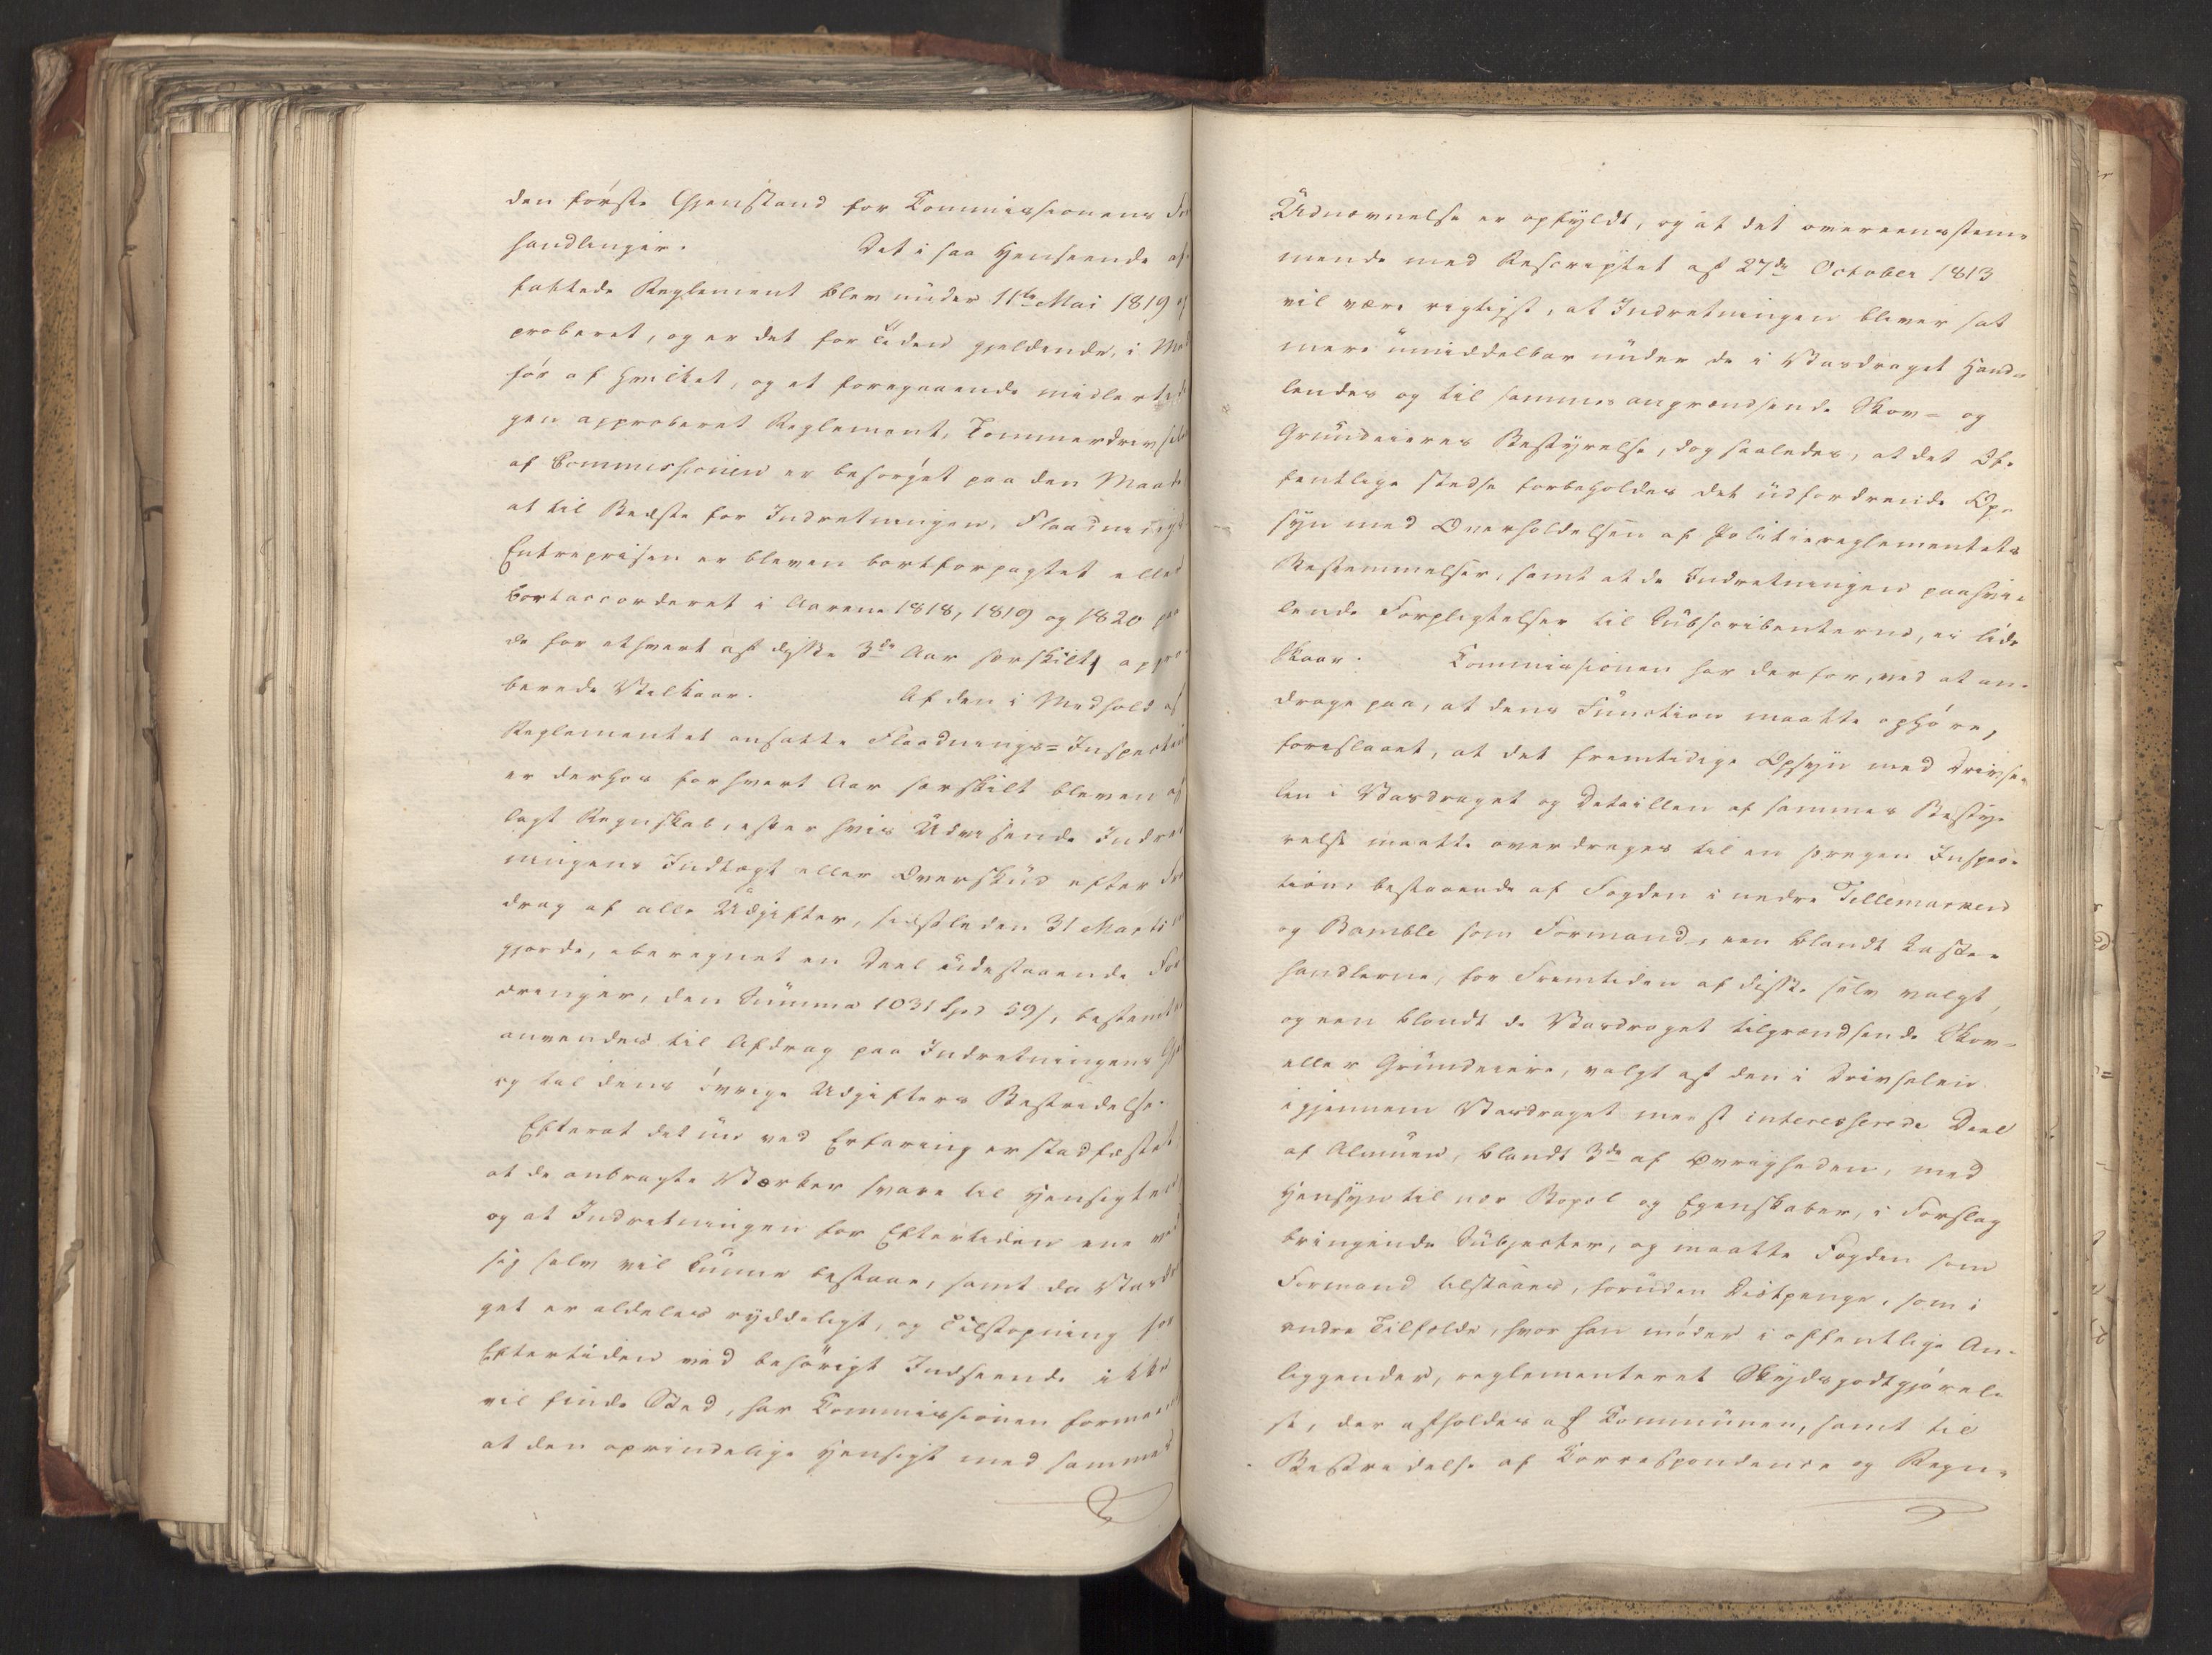 den første Gjenstand for Commissionens For
handlinger. Det i saa Henseende af
fattede Reglement blev under 11te Mai 1819 ap
proberet, og er det for Tiden gjeldende, i Med
før af hvilket, og et foregaaende midlertid
gen approberet Reglement, Tømmerdrivsel
af Commissionen er besørget paa den Maade
at til Bedste for Indretningen, Flaadnings
Entreprisen er bleven bortforpagtet eller
bortaccorderet i Aarene 1818, 1819 og 1820 paa
de for ethvert af disse 3de Aar særskilt appro
berede Vilkaar. Af den i Medhold af
Reglementet ansatte Flaadnings-Inspecteur
er derhos for hvert Aar særskilt bleven af
lagt Regnskab, efter hvis Udvisende Indret
ningens Indtægt eller Overskud efter Fra
drag af alle Udgifter, sidstleden 31 Martii
gjorde, uberegnet en Deel udestaaende For
dringer, den Summa 1031 Spd 59 s, bestemt
anvendes til Afdrag paa Indretningens Gje
og til dens øvrige Udgifters Bestridelse.
Efterat det nu ved Erfaring er stadfæstet
at de anbragte Værker svare til Hensigten
og at Indretningen for Eftertiden ene ved
sig selv vil kunne bestaae, samt da Vasdra
get er aldeles ryddeligt, og Tilstopning for
Eftertiden ved behørigt Indseende ikke
vil finde Sted, har Commissionen formeent
at den oprindelige Hensigt med sammes
Udnævnelse er opfyldt, og at det overeensstem-
mende med Rescriptet af 27de October 1813
vil være rigtigst, at Indretningen bliver sat
mere umiddelbar under de i Vasdraget Hand-
lendes og til sammes angrændsende Skov- og
Grundeieres Bestyrelse, dog saaledes, at det Of-
fentlige stedse forbeholdes det udfordrende Op-
syn med Overholdelsen af Politiereglementets
Bestemmelser, samt at de Indretningen paahvi-
lende Forpligtelser til Subscribenterne, ei lide
Skaar. Commissionen har derfor, ved at an-
drage paa, at dens Function maatte ophøre,
foreslaaet, at det fremtidige Opsyn med Drivse-
len i Vasdraget og Detaillen af sammes Besty-
relse maatte overdrages til en særegen Inspec-
tion, bestaaende af Fogden i nedre Tellemarken
og Bamble som Formand, een blandt Laste-
handlerne, for Fremtiden af disse selv valgt,
og een blandt de Vasdraget tilgrændsende Skov-
eller Grundeiere, valgt af den i Drivselen
igjennem Vasdraget meest interesserede Deel
af Almuen, blandt 3de af Øvrigheden, med
Hensyn til nær Bopæl og Egenskaber, i Forslag
bringende Subjecter, og maatte Fogden som
Formand tilstaaes, foruden Diætpenge, som i
andre Tilfælde, hvor han møder i offentlige An-
liggender, reglementeret Skydsgodtgjørel-
se, der afholdes af Communen, samt til
Bestridelse af Correspondence og Regn-